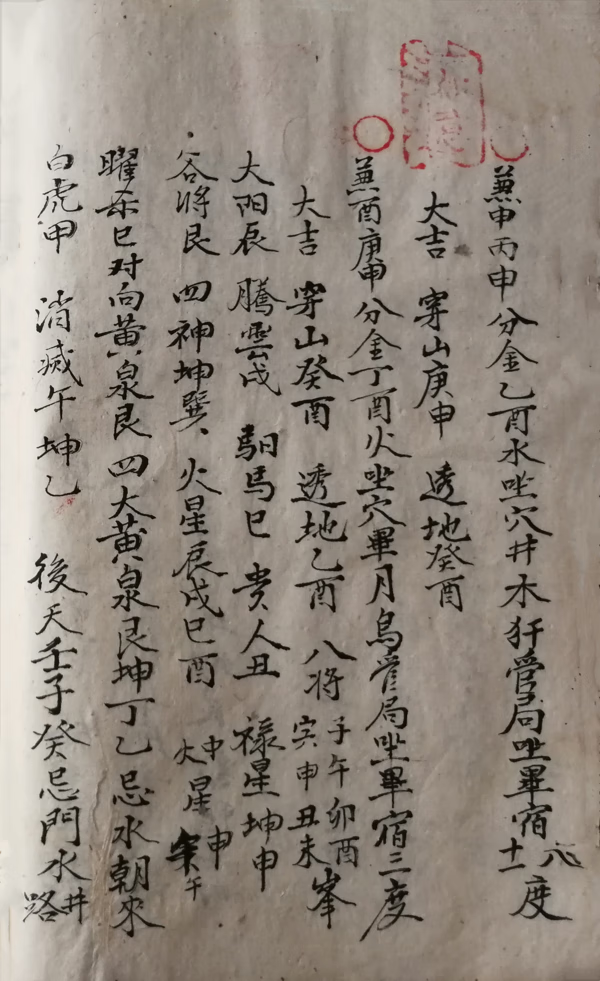 兼申丙申分金乙酉水坐穴井木犴管局坐畢宿十六度
大吉 穿山庚申 透地癸酉
兼酉庚申分金丁酉火坐穴畢月烏管局坐畢宿三度
大吉 穿山癸酉 透地乙酉 八将子午卯酉寅申丑未峯
大阳辰 騰雲戌 馹馬巳 贵人丑 禄星坤申
谷将艮 四神坤巽 火星辰戌巳酉 中大星申午
曜杀巳对向黄泉艮 四大黄泉艮坤丁乙忌水朝來
白虎甲 消滅午坤乙 後天壬子癸忌門水井路